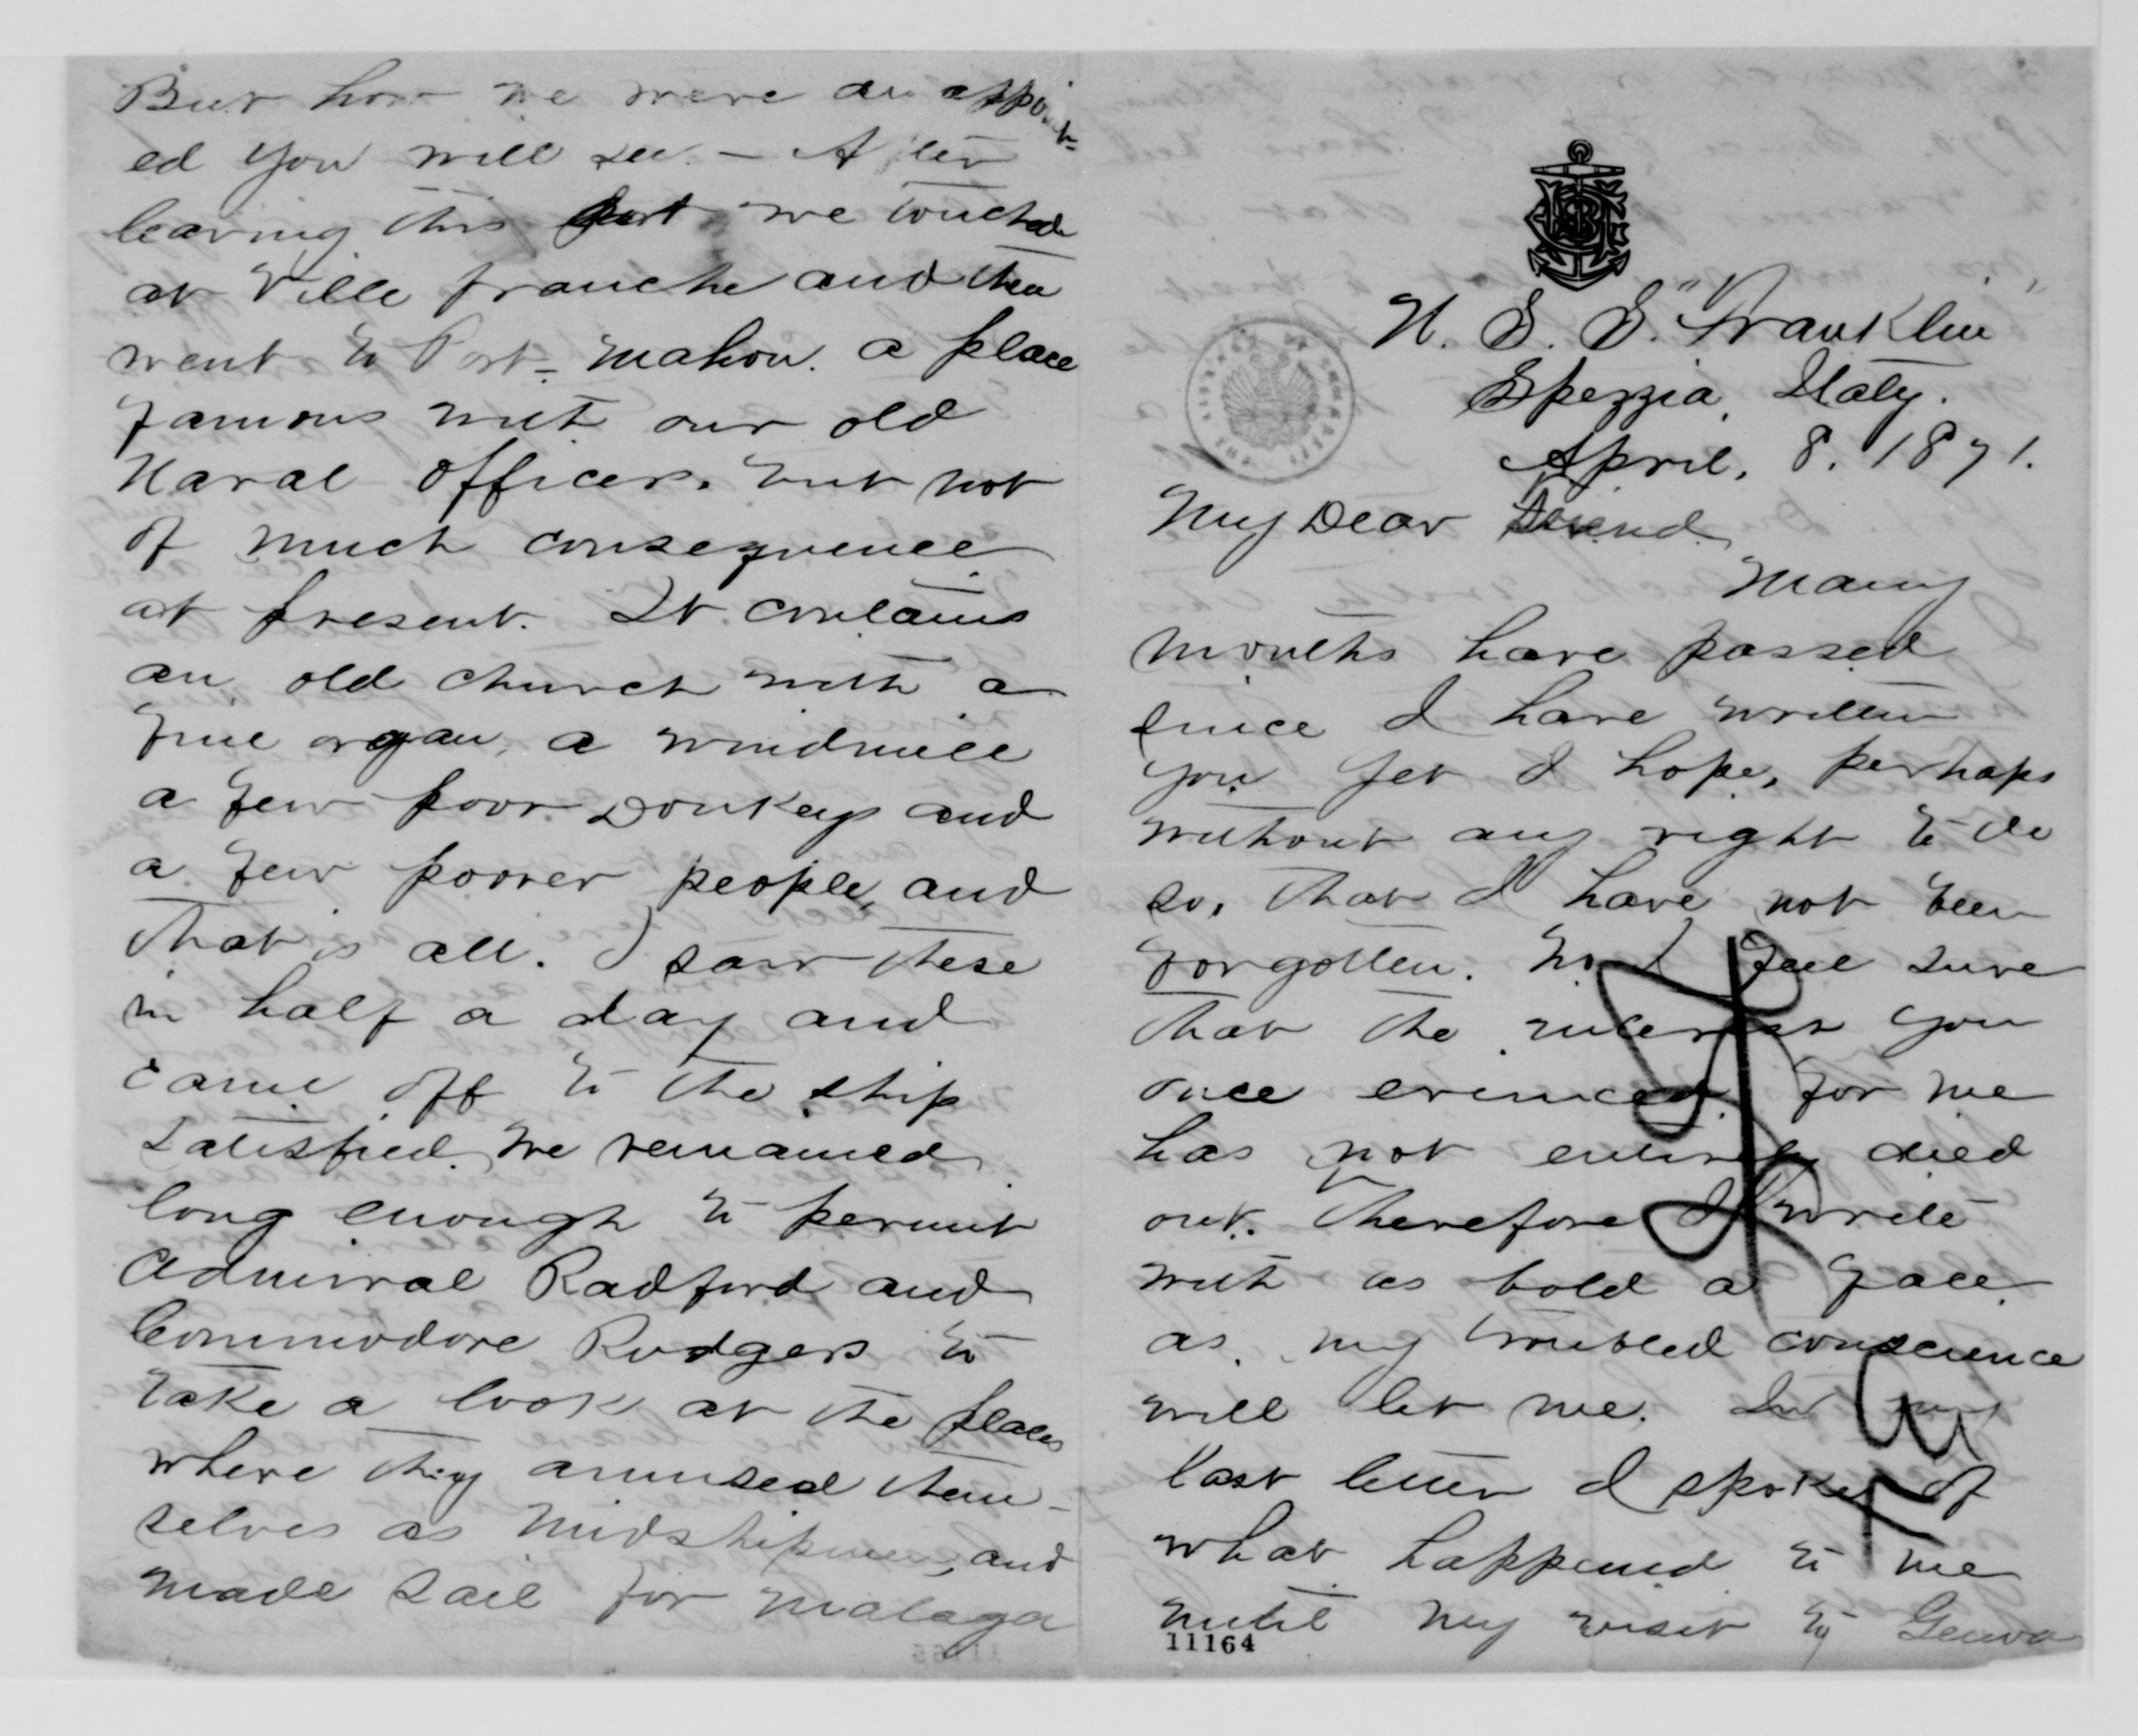 U. S. S. "Franklin"
Spezzia, Italy.
April, 8. 1871.
My Dear Friend
Many
months have passed
since I have written
you yet I hope, perhaps
without any right to do
so, that I have not been
forgotten. No I feel sure
that the interest you
once evinced for me
has not entirely died
out. Therefore I write
with as bold a face
as my troubled conscience
will let me. In my
last letter I spoke of
what happened to me
until my visit to Genoa
11164
But how we were disappoint-
ed you will see. - After
leaving this port we touched
at Ville franche and then
went to Port-Mahon. a place
famous with our old
Naval Officers. but not
of much consequence
at present. It contains
an old church with a
fine organ, a windmill
a few poor Donkeys and
a few poorer people, and
that is all. I saw these
in half a day and
came off to the ship
satisfied. We remained
long enough to permit
Admiral Radford and
Commodore Rodgers to
take a look at the places
where they amused them-
selves as Midshipmen, and
made sail for Malaga